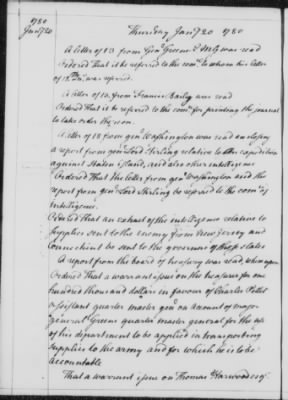 1780
Jany 20
Thursday Jany 20 1780
A letter of 13 from Genl Greene Q M G was read
Ordered That it be referred to the comee to whom his letter
of 12 was referred.
A letter of 13 from Francis Bailey was read
Ordered That it be referred to the comee for printing the journal
to take order thereon.
A letter of 18 from genl Washington was read enclosing
a report from genl lord Stirling relative to the expedition
against Staten Island, and also other intelligence
Ordered That the letter from genl Washington and the
report from genl lord Stirling be referred to the comee of
intelligence.
Ordered That an extract of the intelligence relative to
supplies sent to the enemy from New Jersey and
Connecticut be sent to the governors of those states
A report from the board of treasury was read whereupon
Ordered That a warrant issue on the treasurer for one
hundred thousand dollars in favour of Charles Pettit
assistant quarter master genl on account of major
general Greene quarter master general for the use
of his department to be applied in transporting
supplies to the army and for which he is to be
accountable
That a warrant issue on Thomas Harwood esqr